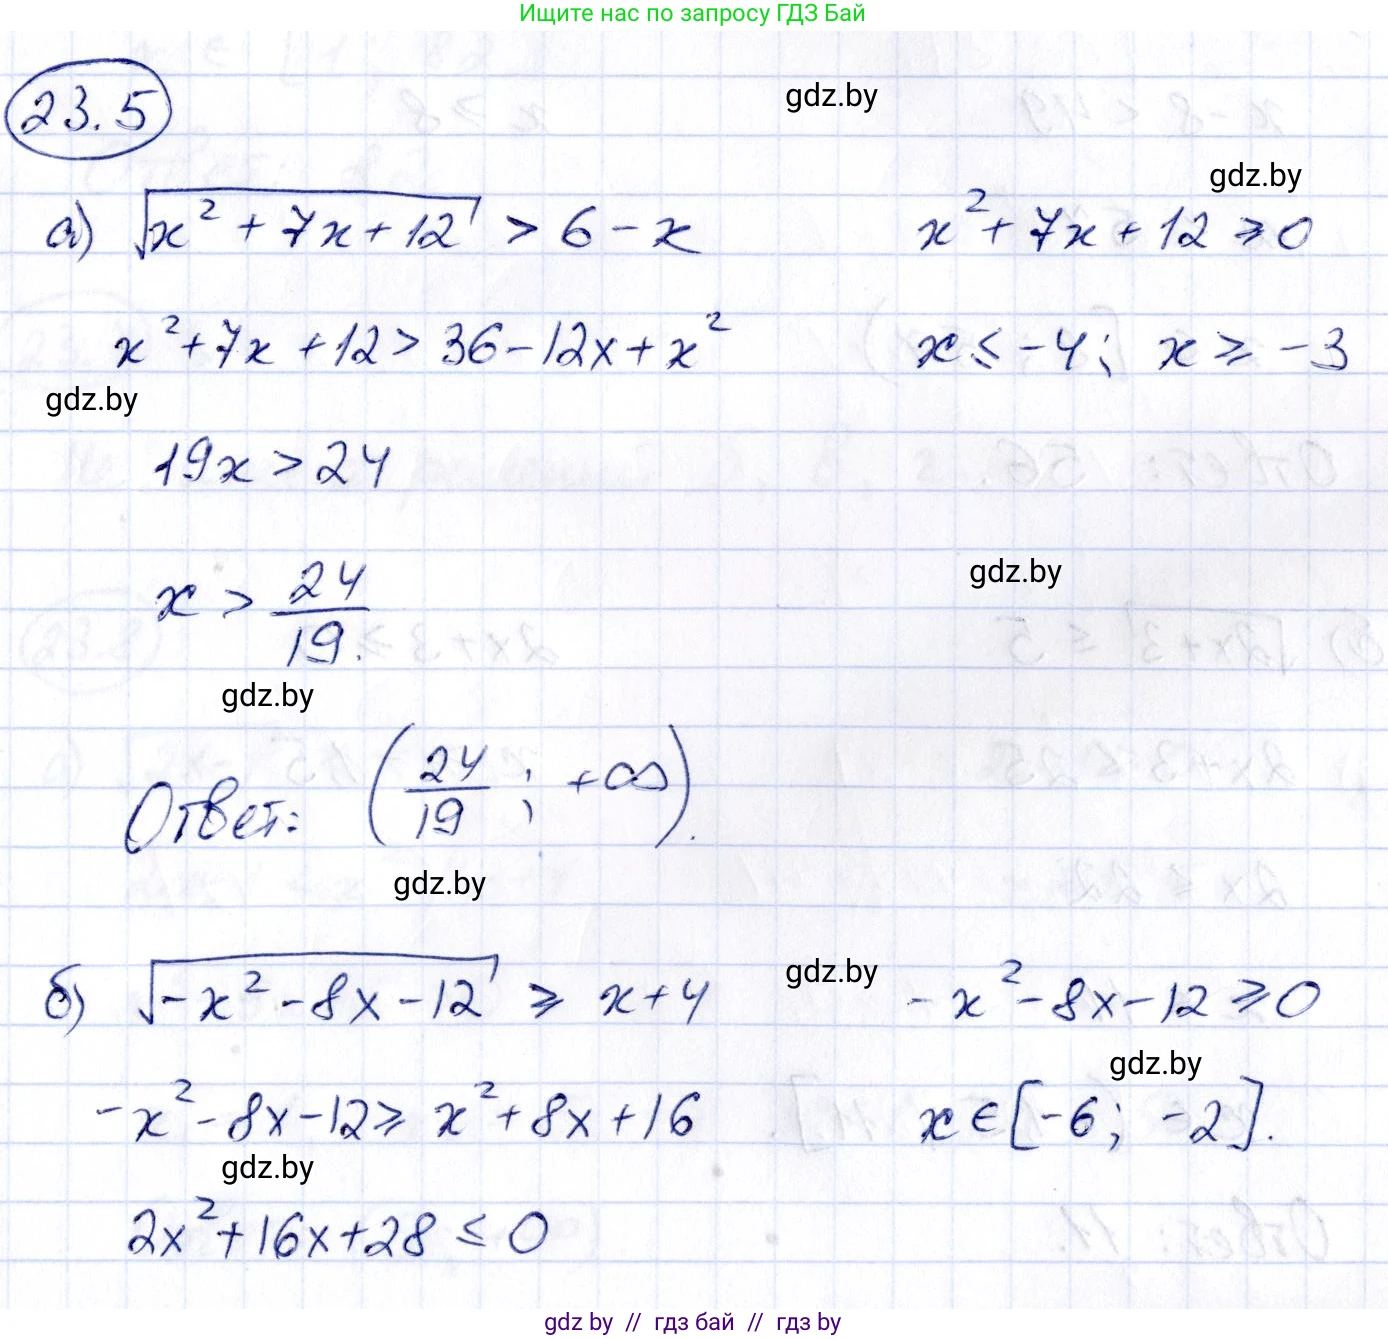 Ищите нас по запросу ГДЗ Бай
23.5
gdz.by
gdz.by
а) √(x² + 7x + 12) > 6 - x
x² + 7x + 12 ≥ 0
x² + 7x + 12 > 36 - 12x + x²
x ≤ -4; x ≥ -3
gdz.by
19x > 24
gdz.by
x > 24/19.
gdz.by
Ответ: (24/19; +∞).
gdz.by
б) √(-x² - 8x - 12) ≥ x + 4
gdz.by
-x² - 8x - 12 ≥ 0
gdz.by
-x² - 8x - 12 ≥ x² + 8x + 16
x ∈ [-6; -2].
gdz.by
2x² + 16x + 28 ≤ 0
gdz by // гдз бай // гдз by